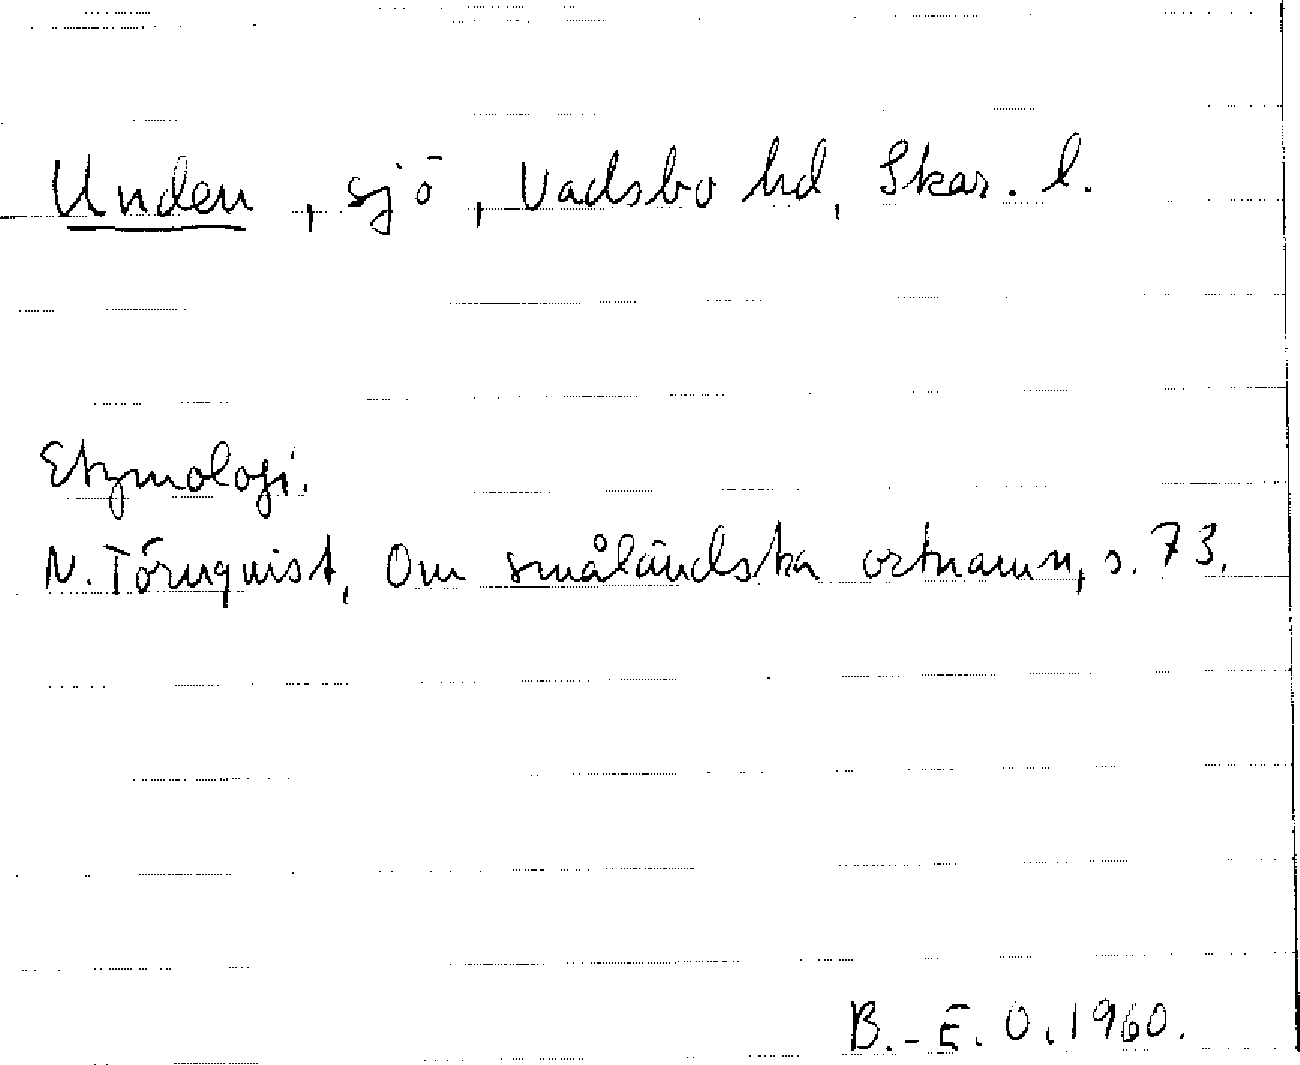 Unden, sjö, Vadsbo hd, Skar. l.
Etymologi.
N. Törnqvist, Om småländska ortnamn, s. 73.
B.-E. O. 1960.